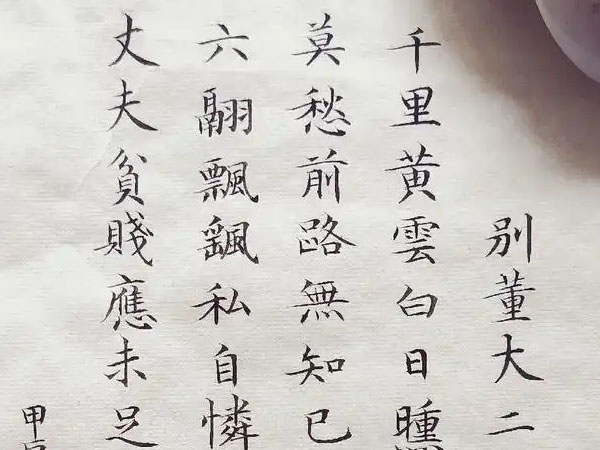 别董大二
千里黄雲白日曛
莫愁前路無知已
六翮飄飖私自憐
丈夫貧賤應未足
甲